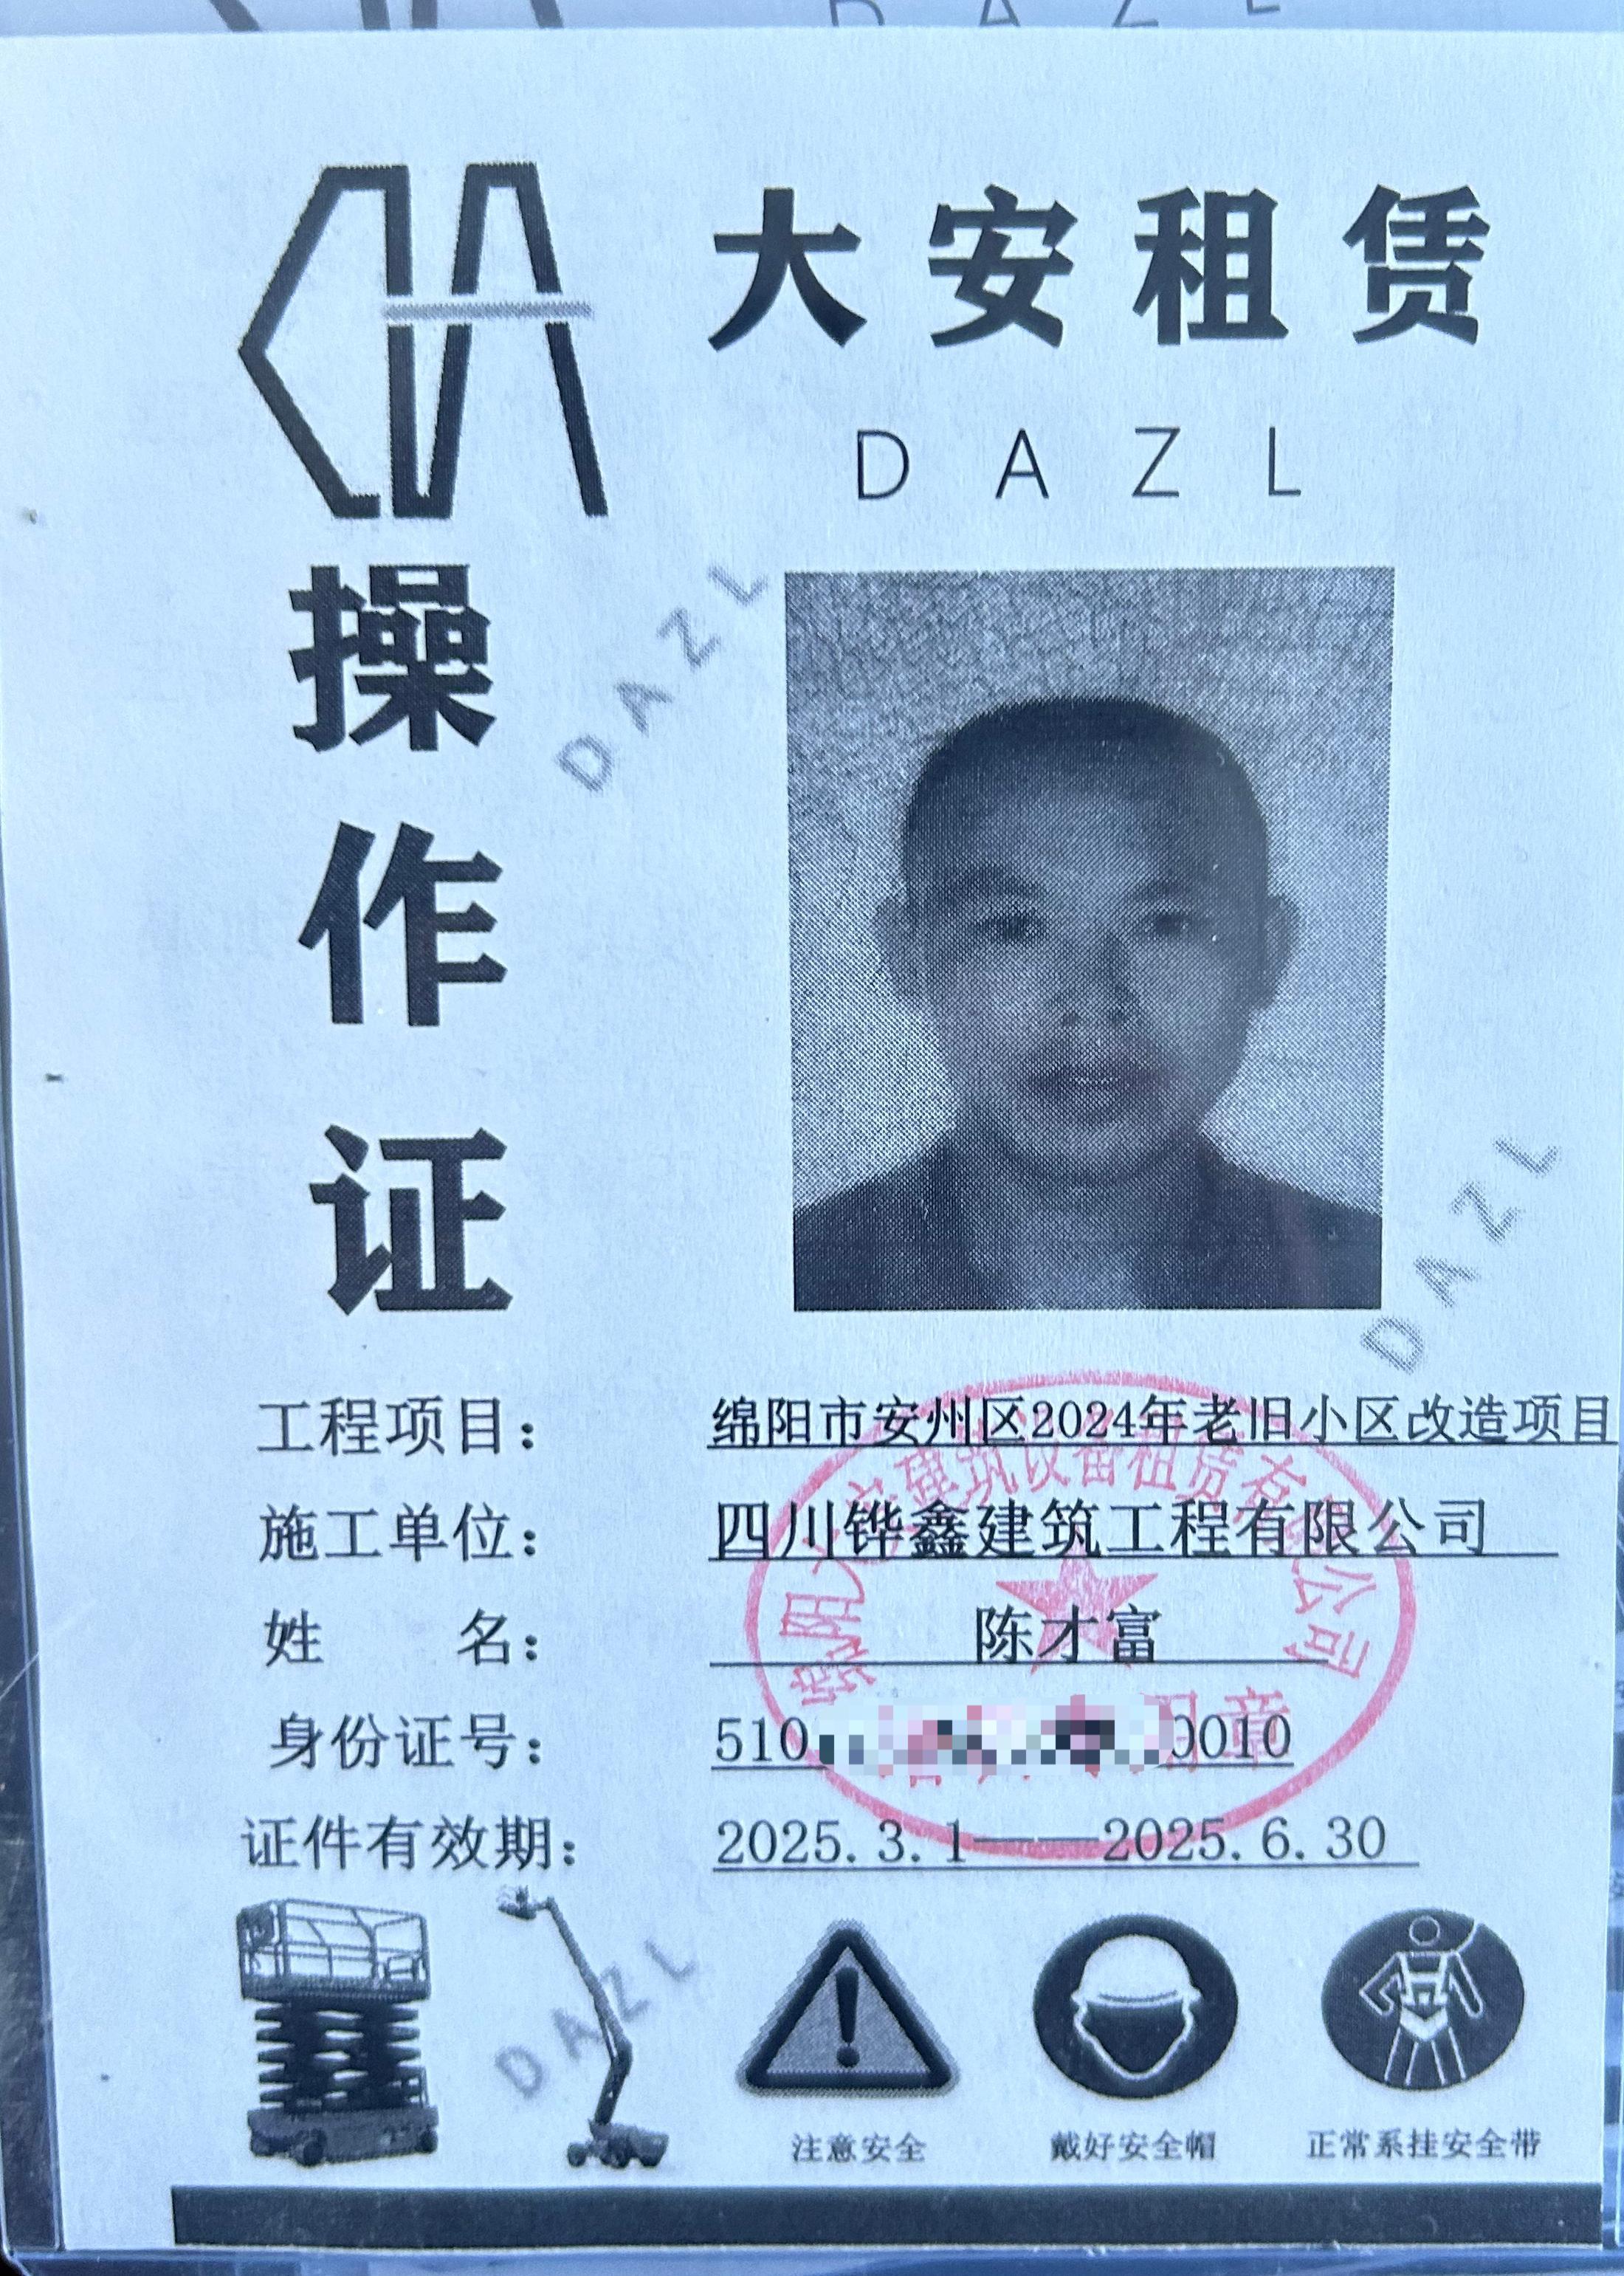 D A Z L
大安租赁
D A Z L
操
作
证
D A Z L
D A Z L
工程项目： 绵阳市安州区2024年老旧小区改造项目
施工单位： 四川铧鑫建筑工程有限公司
姓 名： 陈才富
身份证号： 510 0010
证件有效期： 2025.3.1——2025.6.30
绵阳大安建筑设备租赁有限公司
用章
D A Z L
注意安全 戴好安全帽 正常系挂安全带